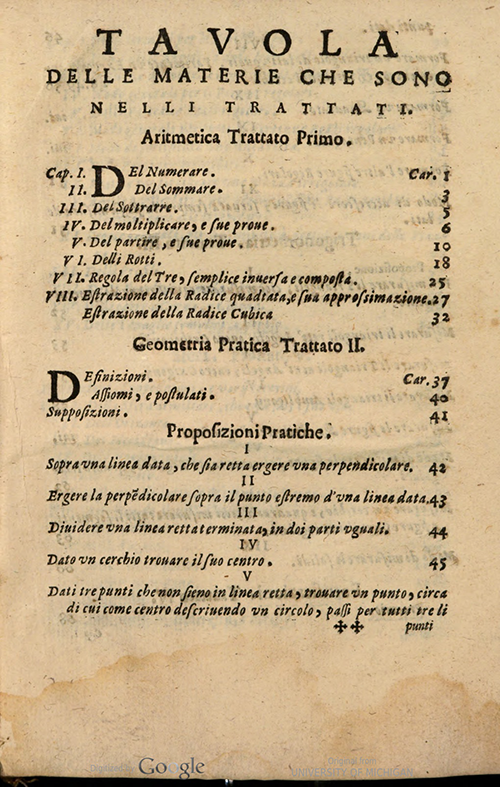 TAVOLA
DELLE MATERIE CHE SONO
NELLI TRATTATI.
Aritmetica Trattato Primo.
Cap. I. DEl Numerare. Car. 1
II. Del Sommare. 3
III. Del Sottrarre. 5
IV. Del moltiplicare, e sue proue. 6
V. Del partire, e sue proue. 10
VI. Delli Rotti. 18
VII. Regola del Tre, semplice inuersa e composta. 25
VIII. Estrazione della Radice quadtata, e sua approssimazione. 27
Estrazione della Radice Cubica 32
Geometria Pratica Trattato II.
DEfinizioni. Car. 37
Assiomi, e postulati. 40
Supposizioni. 41
Proposizioni Pratiche.
I
Sopra vna linea data, che sia retta ergere vna perpendicolare. 42
II
Ergere la perpẽdicolare sopra il punto estremo d'vna linea data. 43
III
Diuidere vna linea retta terminata, in doi parti vguali. 44
IV
Dato vn cerchio trouare il suo centro. 45
V
Dati tre punti che non sieno in linea retta, trouare vn punto, circa
di cui come centro descriuendo vn circolo, passi per tutti tre li
✠✠ punti
Google
Original from
UNIVERSITY OF MICHIGAN